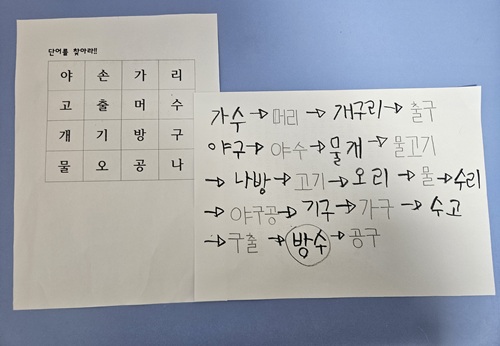 단어를 찾아라!!
야 손 가 리
고 출 머 수
개 기 방 구
물 오 공 나
가수 → 머리 → 개구리 → 출구
야구 → 야수 → 물개 → 물고기
→ 나방 → 고기 → 오리 → 물 → 수리
→ 야구공 → 기구 → 가구 → 수고
→ 구출 → 방수 → 공구